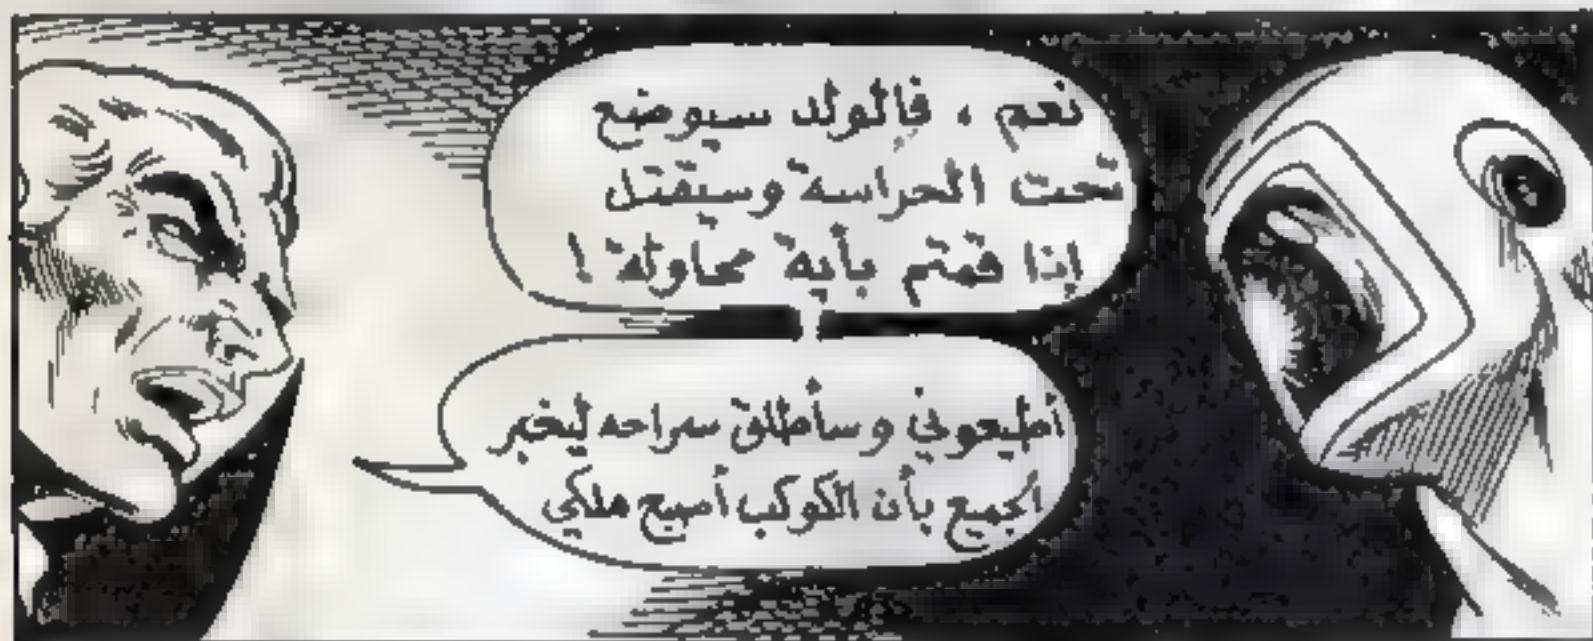 نعم ، فالولد سيوضع
تحت الحراسة وسيقتل
إذا قمتم بأية محاولة !
أطيعوني وسأطلق سراحه ليخبر
الجميع بأن الكوكب أصبح ملكي